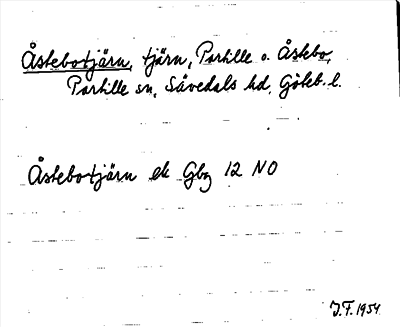 Åstebotjärn, tjärn, Partille o. Åstebo,
Partille sn, Sävedals hd, Göteb. l.
Åstebotjärn ek Gbg 12 NO
J.F. 1954